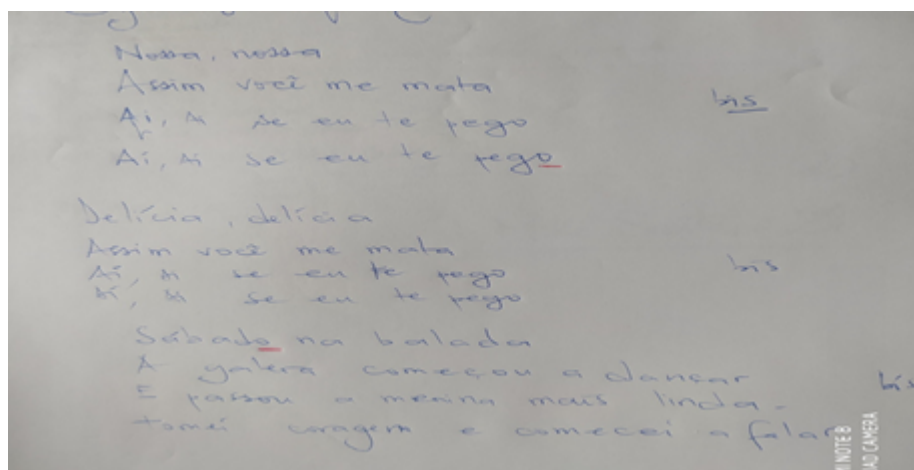 Nossa, nossa
Assim você me mata bis
Ai, Ai se eu te pego
Aí, Ai se eu te pego
Delícia, delícia
Assim você me mata
Aí, Ai se eu te pego bis
Aí, Ai se eu te pego
Sábado na balada
A galera começou a dançar
E passou a menina mais linda bis
tomei coragem e comecei a falar
NOTE 8
AD CAMERA